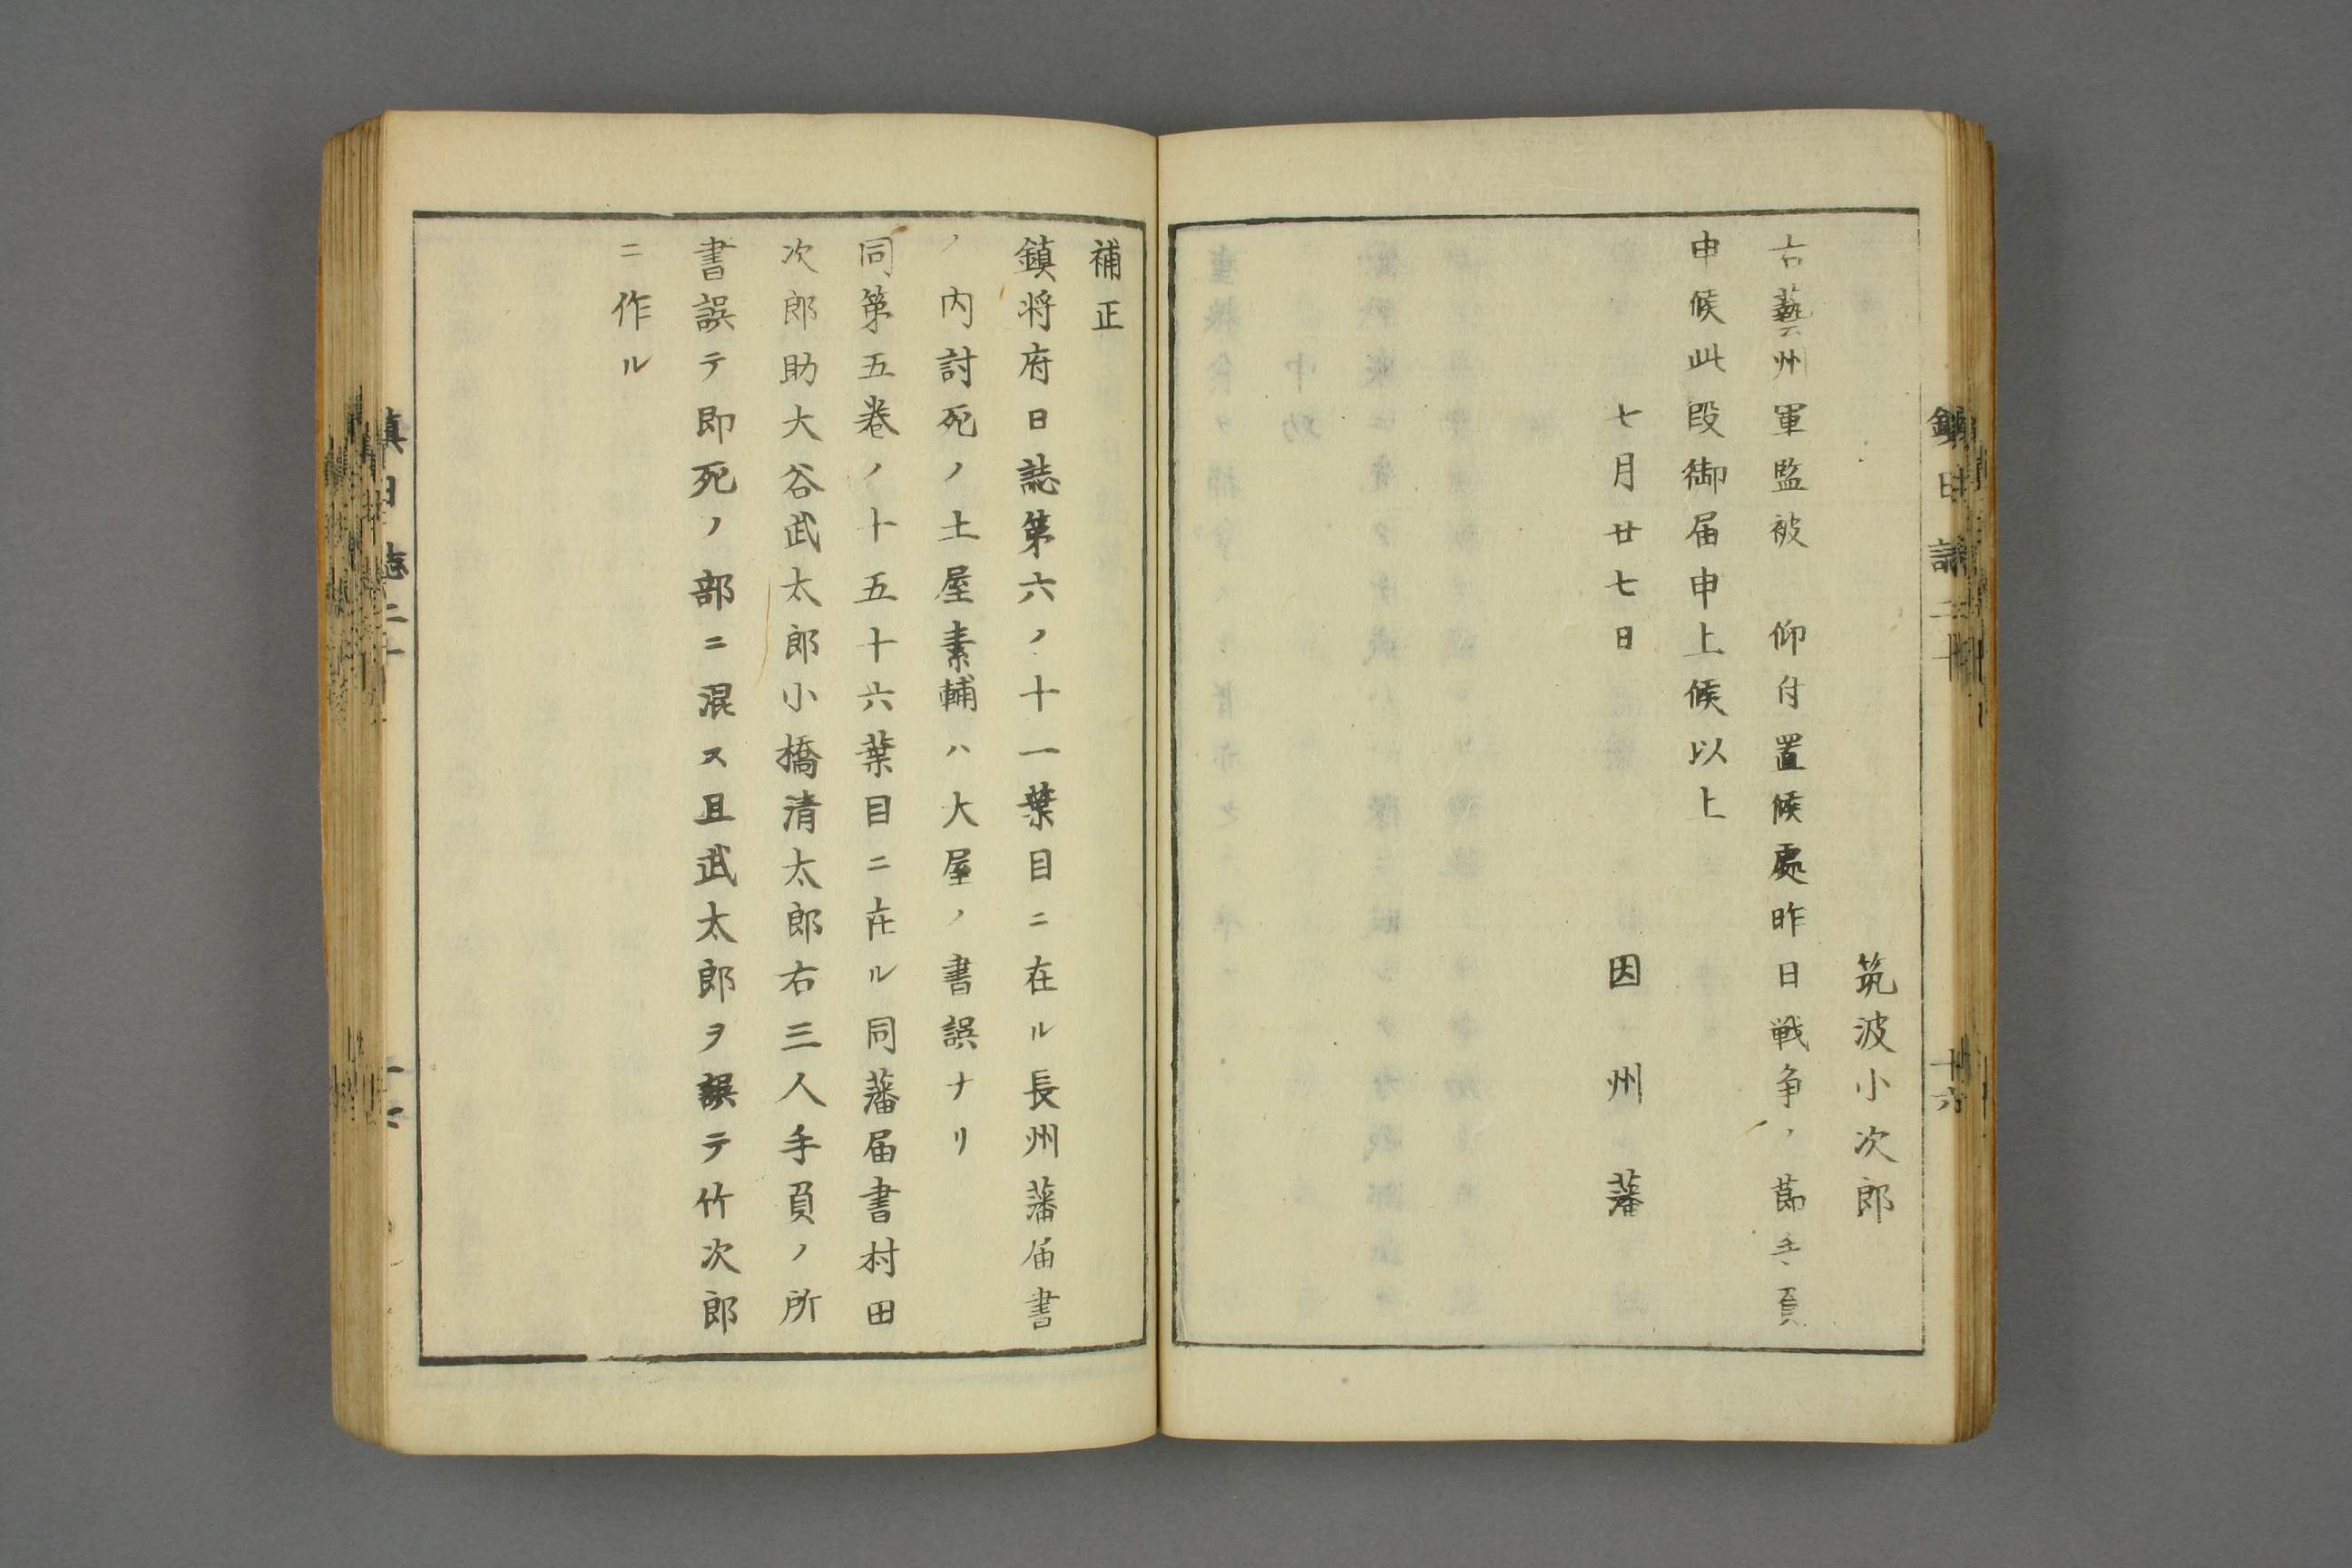 筑波小次郎
右藝州軍監被　仰付置候處昨日戦争ノ節手負
申候此段御届申上候以上
七月廿七日　　　因州藩
補正
鎮将府日誌第六ノ十一葉目ニ在ル長州藩届書
ノ内討死ノ土屋素輔ハ大屋ノ書誤ナリ
同第五巻ノ十五十六葉目ニ在ル同藩届書村田
次郎助大谷武太郎小橋清太郎右三人手負ノ所
書誤テ即死ノ部ニ混ス且武太郎ヲ誤テ竹次郎
ニ作ル
鎮日誌二十
十六